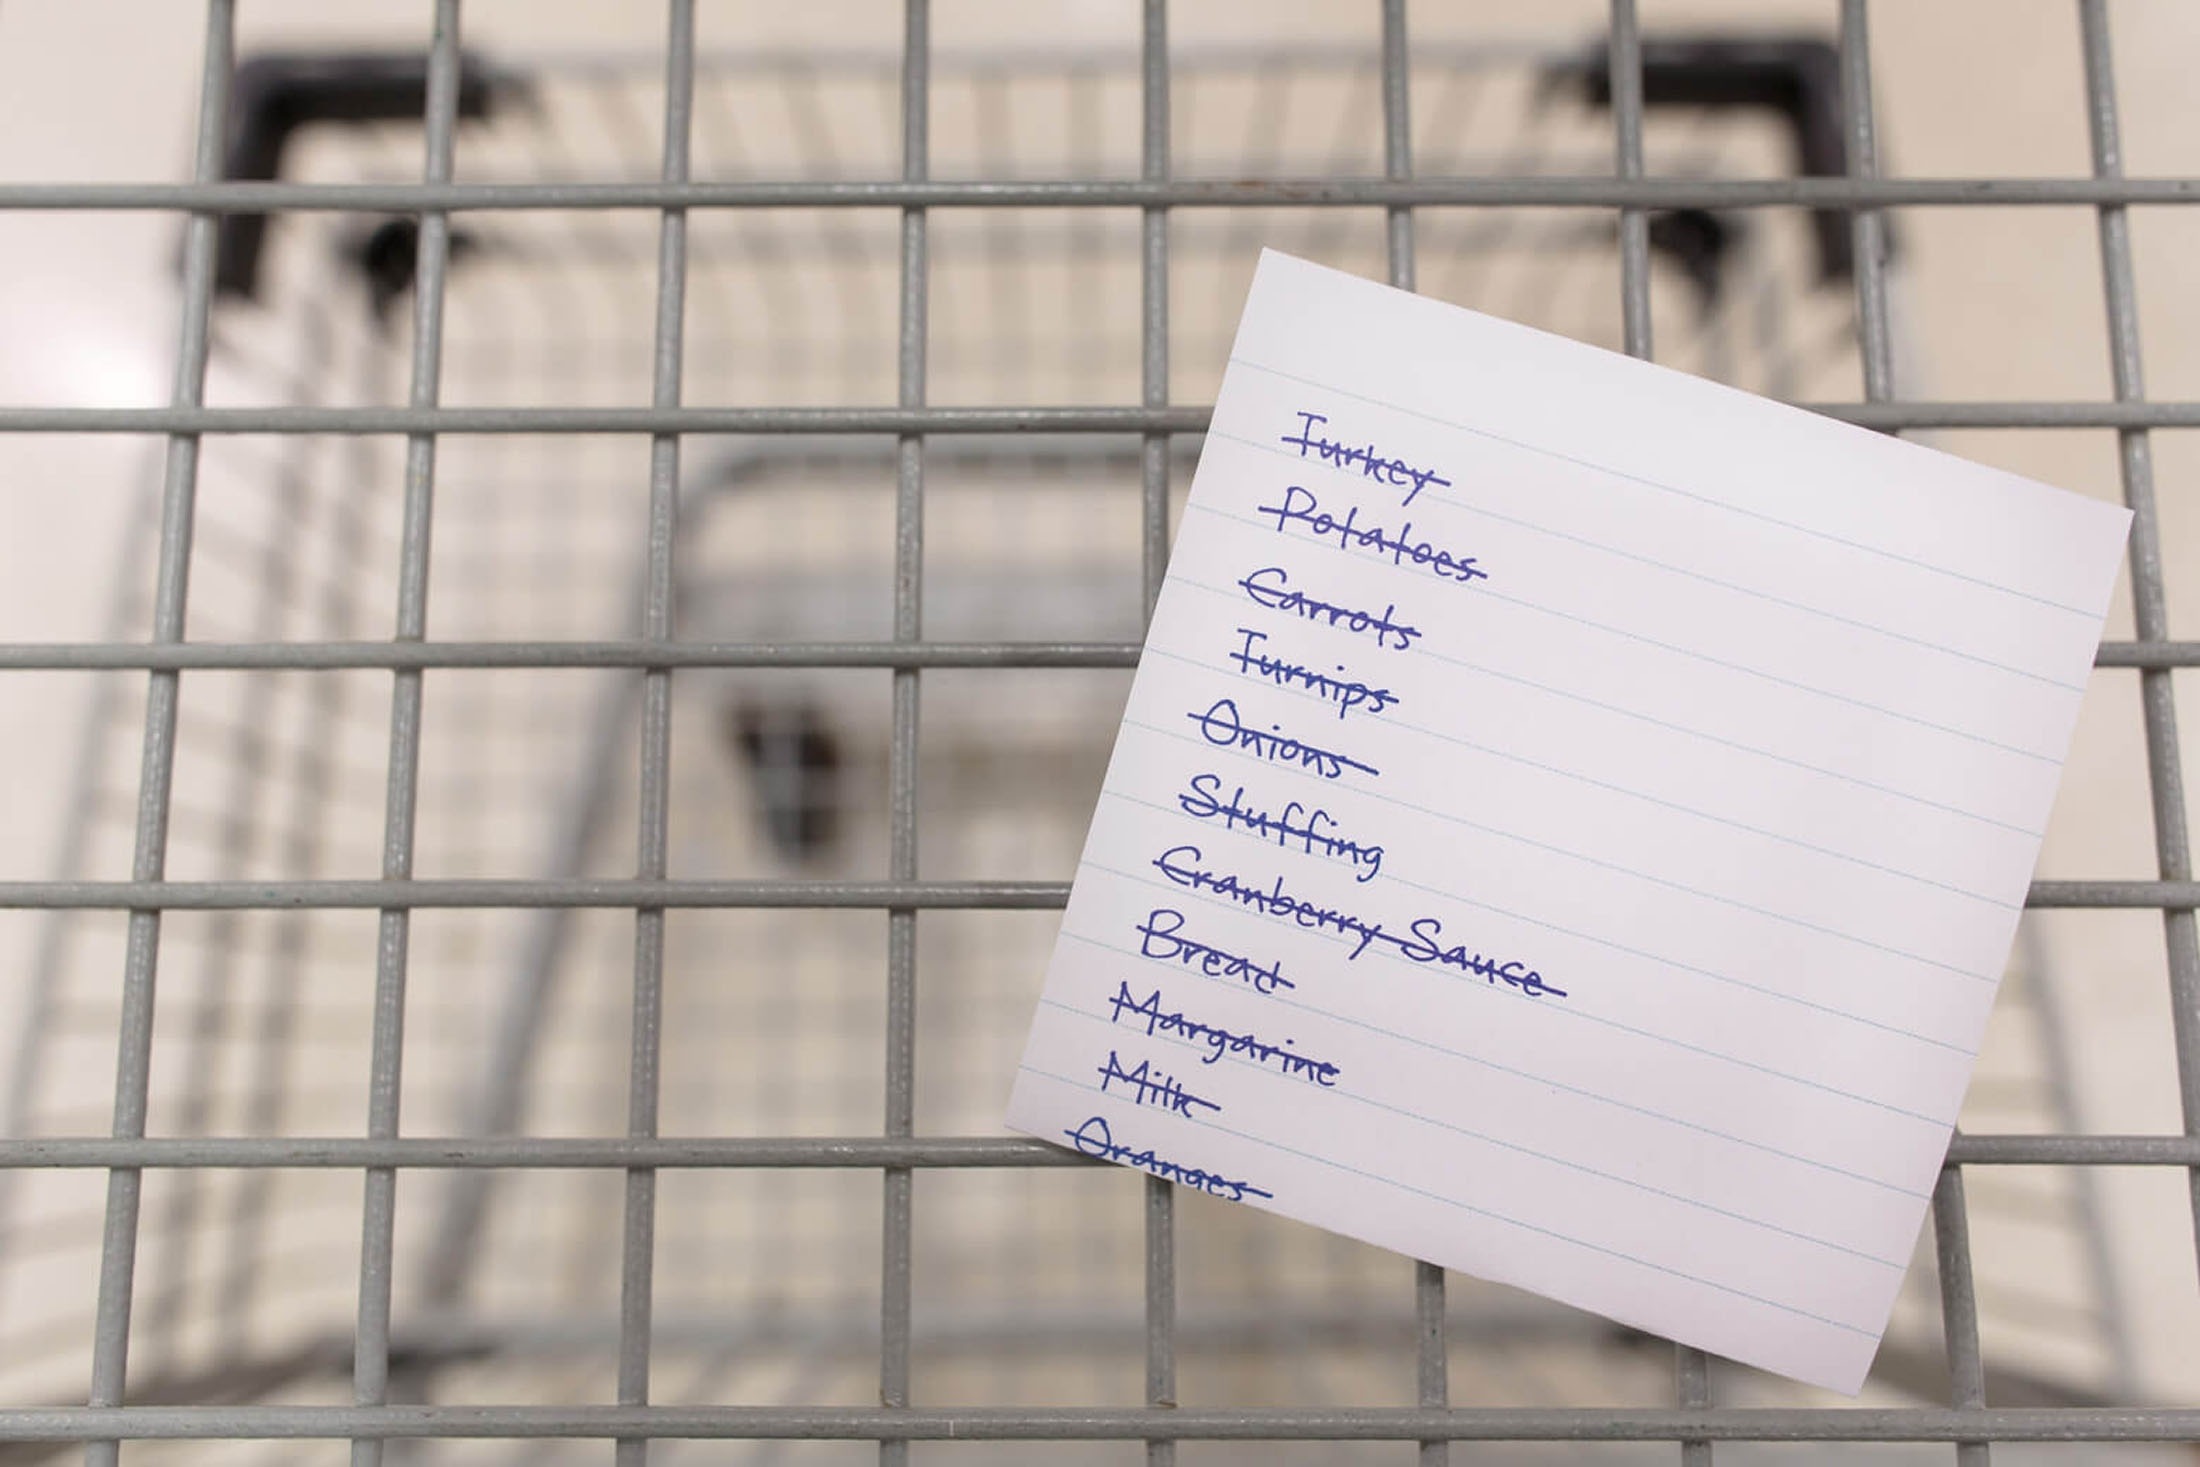 Turkey
Potatoes
Carrots
Turnips
Onions
Stuffing
Cranberry Sauce
Bread
Margarine
Milk
Oranges